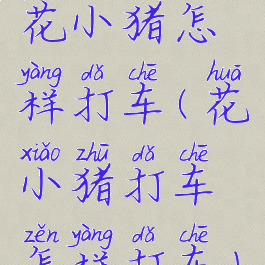 花小猪怎
yàng dǎ chē huā
样打车(花
xiǎo zhū dǎ chē
小猪打车
zěn yàng dǎ chē
怎样打车)